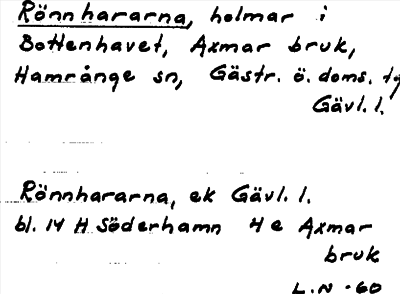 Rönnhararna, holmar i
Bottenhavet, Axmar bruk,
Hamrånge sn, Gästr. ö. doms. tg
Gävl. l.
Rönnhararna, ek Gävl. l.
bl. 14 H Söderhamn 4 e Axmar
bruk
L.N -60